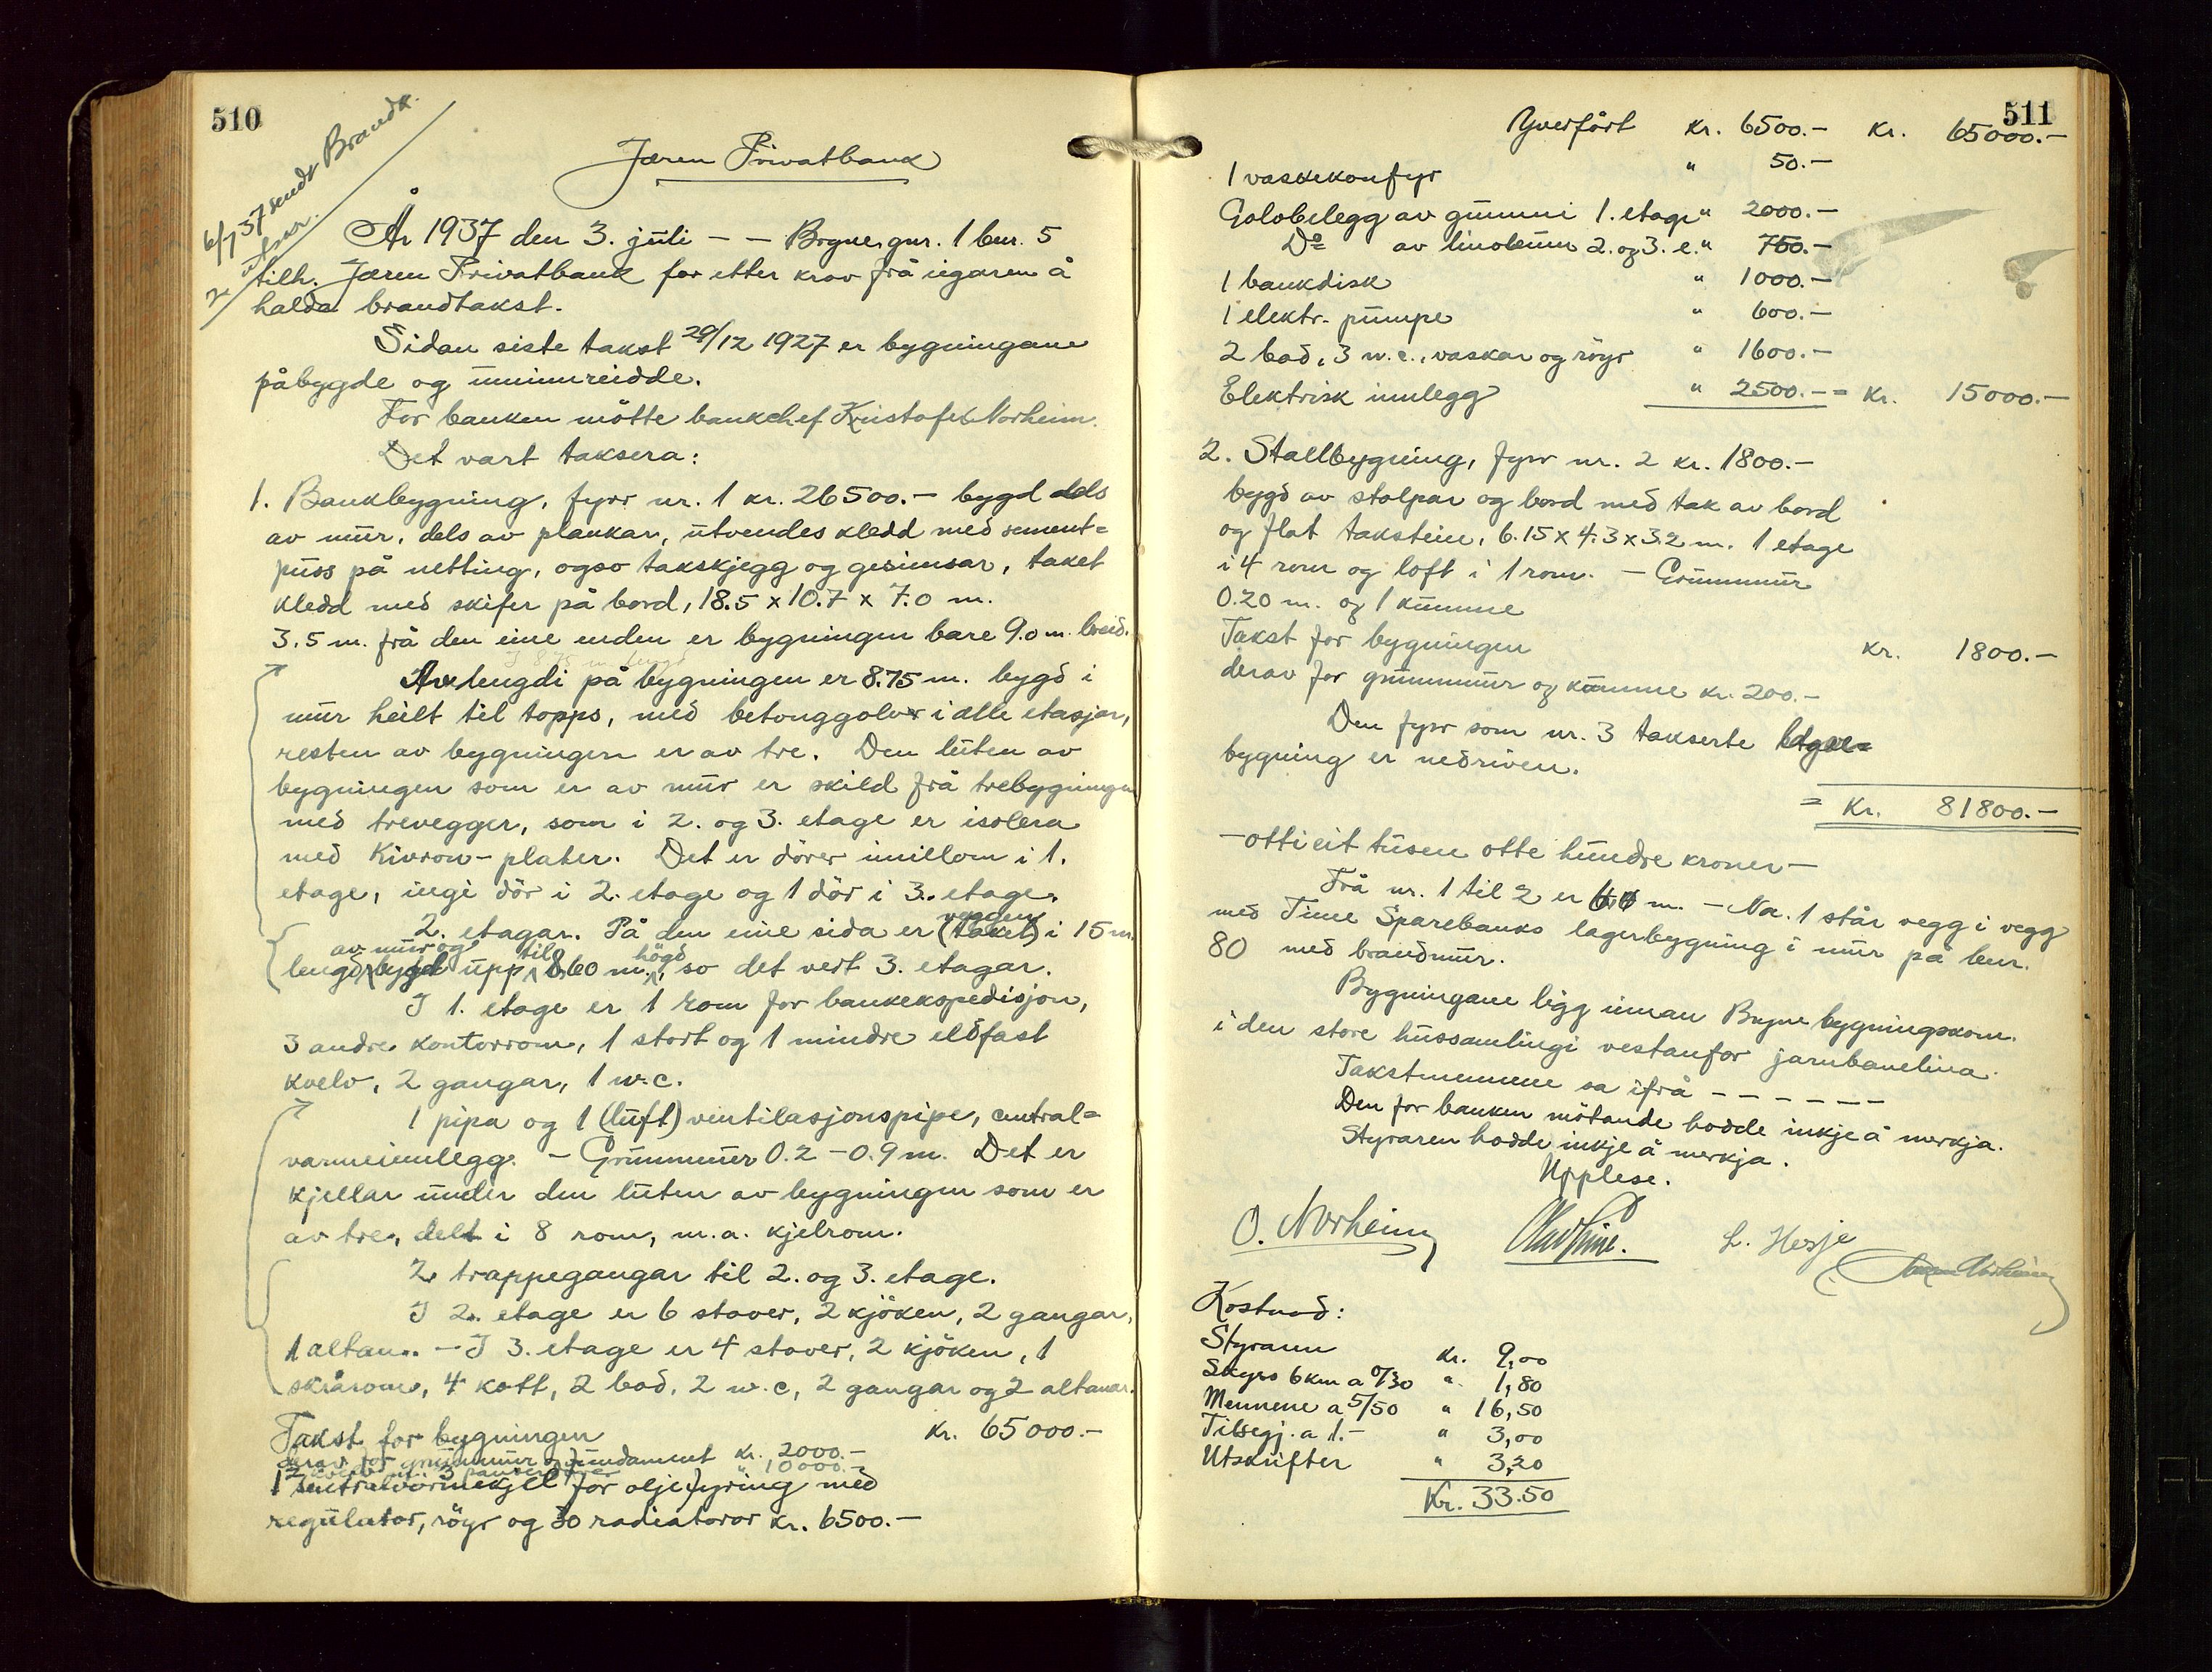 510
6/7 37 sendt Brandk.
2 utskr.
Jæren Privatbank
År 1937 den 3. juli - - Bryne, gnr. 1 bnr. 5
tilh. Jæren Privatbank for etter krav frå eigaren å
halda brandtakst.
Sidan siste takst 29/12 1927 er bygningane
påbygde og uminnreidde.
For banken mötte bankchef Kristofer Norheim.
Det vart taksera:
1. Bankbygning, fyrr nr. 1 kr. 26500.- bygd dels
av mur, dels av plankar, utvendes kledd med sement=
puss på netting, ogso takskjegg og gesimsar, taket
kledd med skifer på bord, 18.5 x 10.7 x 7.0 m.
3.5 m. frå den eine enden er bygningen bare 9.0 m. breid.
Av lengdi på bygningen er 8.75 m. bygd i
mur heilt til topps, med betonggolv i alle etasjar,
resten av bygningen er av tre. Den luten av
bygningen som er av mur er skild frå trebygningen
med trevegger, som i 2. og 3. etage er isolera
med Kivron-plater. Det er dörer imillom i 1.
etage, ingi dör i 2. etage og 1 dör i 3. etage.
veggen
2. etagar. På den eine sida er (taket) i 15 m.
av mur og til högd
lengd bygd upp 8,60 m., so det vert 3. etagar.
I 1. etage er 1 rom for bankekspedisjon,
3 andre kontorrom, 1 stort og 1 mindre eldfast
kvelv, 2 gangar, 1 w.c.
1 pipa og 1 (luft) ventilasjonspipe, central=
varmeinnlegg. - Grunnmur 0.2 - 0.9 m. Det er
kjellar under den luten av bygningen som er
av tre, delt i 8 rom, m.a. kjelrom.
2 trappegangar til 2. og 3. etage.
I 2. etage er 6 stover, 2 kjöken, 2 gangar,
1 altan. - I 3. etage er 4 stover, 2 kjöken, 1
skrårom, 4 kott, 2 bad, 2 w.c, 2 gangar og 2 altanar.
Takst for bygningen kr. 65000.-
derav for grunnmur og fundament kr. 2000.-
" 10000.-
1 sentralvarmekjel for oljefyring med
regulator, röyr og 30 radiatorar kr. 6500.-
511
Yverfört kr. 6500.- kr. 65000.-
1 vaskekomfyr " 50.-
Golvbelegg av gummi 1. etage " 2000.-
Do av linoleum 2. og 3. e. " 750.-
1 bankdisk " 1000.-
1 elektr. pumpe " 600.-
2 bad, 3 w.c., vaskar og röyr " 1600.-
Elektrisk innlegg " 2500.- = kr. 15000.-
2. Stallbygning, fyrr nr. 2 kr. 1800.-
bygd av stolpar og bord med tak av bord
og flat takstein, 6.15 x 4.3 x 3.2 m. 1 etage
i 4 rom og loft i 1 rom. - Grunnmur
0.20 m. og 1 kumme
Takst for bygningen kr. 1800.-
derav for grunnmur og kumme kr. 200.-
Den fyrr som nr. 3 takserte
bygning er nedriven.
= Kr. 81800.-
- otti eit tusen otte hundre kroner -
Frå nr. 1 til 2 er m. - Nr. 1 står vegg i vegg
med Time Sparebanks lagerbygning i mur på bnr.
80 med brandmur.
Bygningane ligg innan Bryne bygningskom.
i den store hussamlingi vestanfor jarnbanelina.
Takstmennene sa ifrå - - - - - -
Den for banken mötande hadde inkje å merkja.
Styraren hadde inkje å merkja.
Upplese.
O. Norheim
Olav Hine.
L. Hesje
Kostnad:
Styraren kr. 9,00
Skyss 6 km a 0/30 " 1,80
Mennene a 5/50 " 16,50
Tilsegj. a 1.- " 3,00
Utskrifter " 3,20
Kr. 33.50